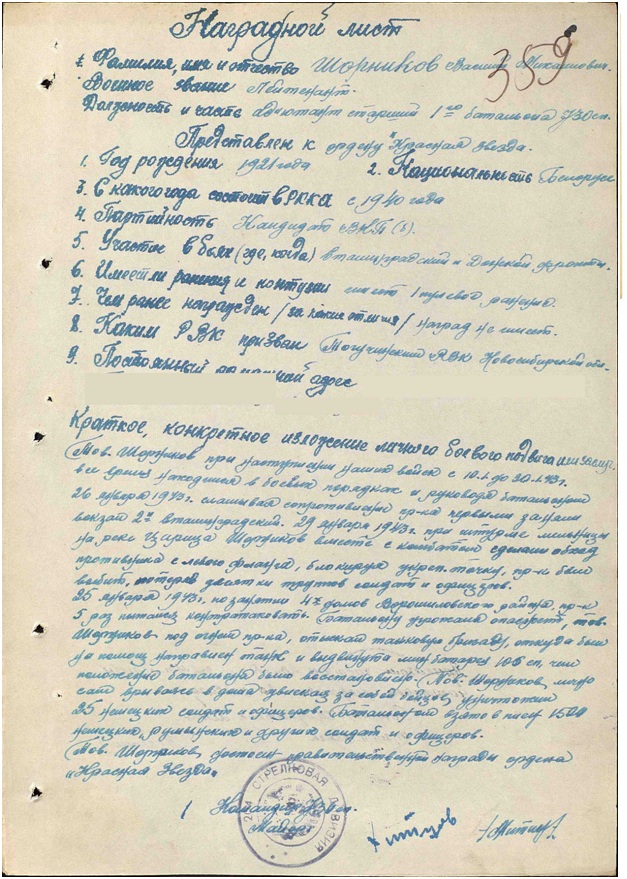 Наградной лист
359
1. Фамилия, имя и отчество Шорников Василий Михайлович.
Военное звание Лейтенант.
Должность и часть адъютант старший 1го батальона 730 сп.
Представлен к ордену "Красная звезда.
1. Год рождения 1921 года 2. Национальность Белорус
3. С какого года состоит в РККА с 1940 года
4. Партийность Кандидат ВКП(б).
5. Участие в боях (где, когда) в сталинградский и Донской фронты.
6. Имеет ли ранения и контузии имеет 1 пулевое ранение.
7. Чем ранее награжден /за какие отличия/ наград не имеет.
8. Каким РВК призван Тогучинский РВК Новосибирской обл.
9. Постоянный адрес
Краткое, конкретное изложение личного боевого подвига или заслуг.
Тов. Шорников при наступлении наших войск с 10.1 до 30.1.43г.
все время находился в боевых порядках и руководя батальоном
26 января 1943г. сламывая сопротивление пр-ка первыми заняли
вокзал 2й сталинградский. 29 января 1943г. при штурме мельницы
на реке Царица Шорников вместе с комбатом сделали обход
противника с левого фланга, блокируя укреп. точку, пр-к был
выбит, потеряв десятки трупов солдат и офицеров.
25 января 1943г, по занятии 4х домов Ворошиловского района, пр-к
5 раз пытался контратаковать. Батальону угрожала опасность, тов.
Шорников под огнем пр-ка, отыскал танковую бригаду, откуда был
на помощь направлен танк и выдвинута мин. батарея 105 сп, чем
положение батальона было восстановлено. Тов. Шорников лично
сам врываясь в дома увлекая за собой бойцов, уничтожил
25 немецких солдат и офицеров. Батальоном взято в плен 1500
немецких, румынских и других солдат и офицеров.
Тов. Шорников достоин правительственной награды ордена
"Красная Звезда"
СТРЕЛКОВАЯ ДИВИЗИЯ
Командир 730 сп.
Майор